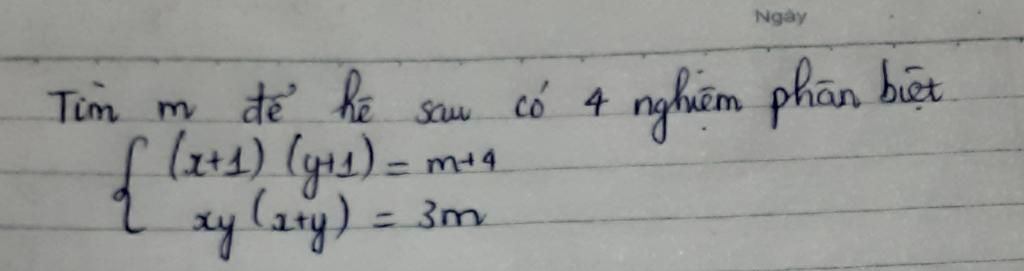 Ngày
Tìm m để hệ sau có 4 nghiệm phân biệt
(x+1) (y+1) = m+4
xy (x+y) = 3m